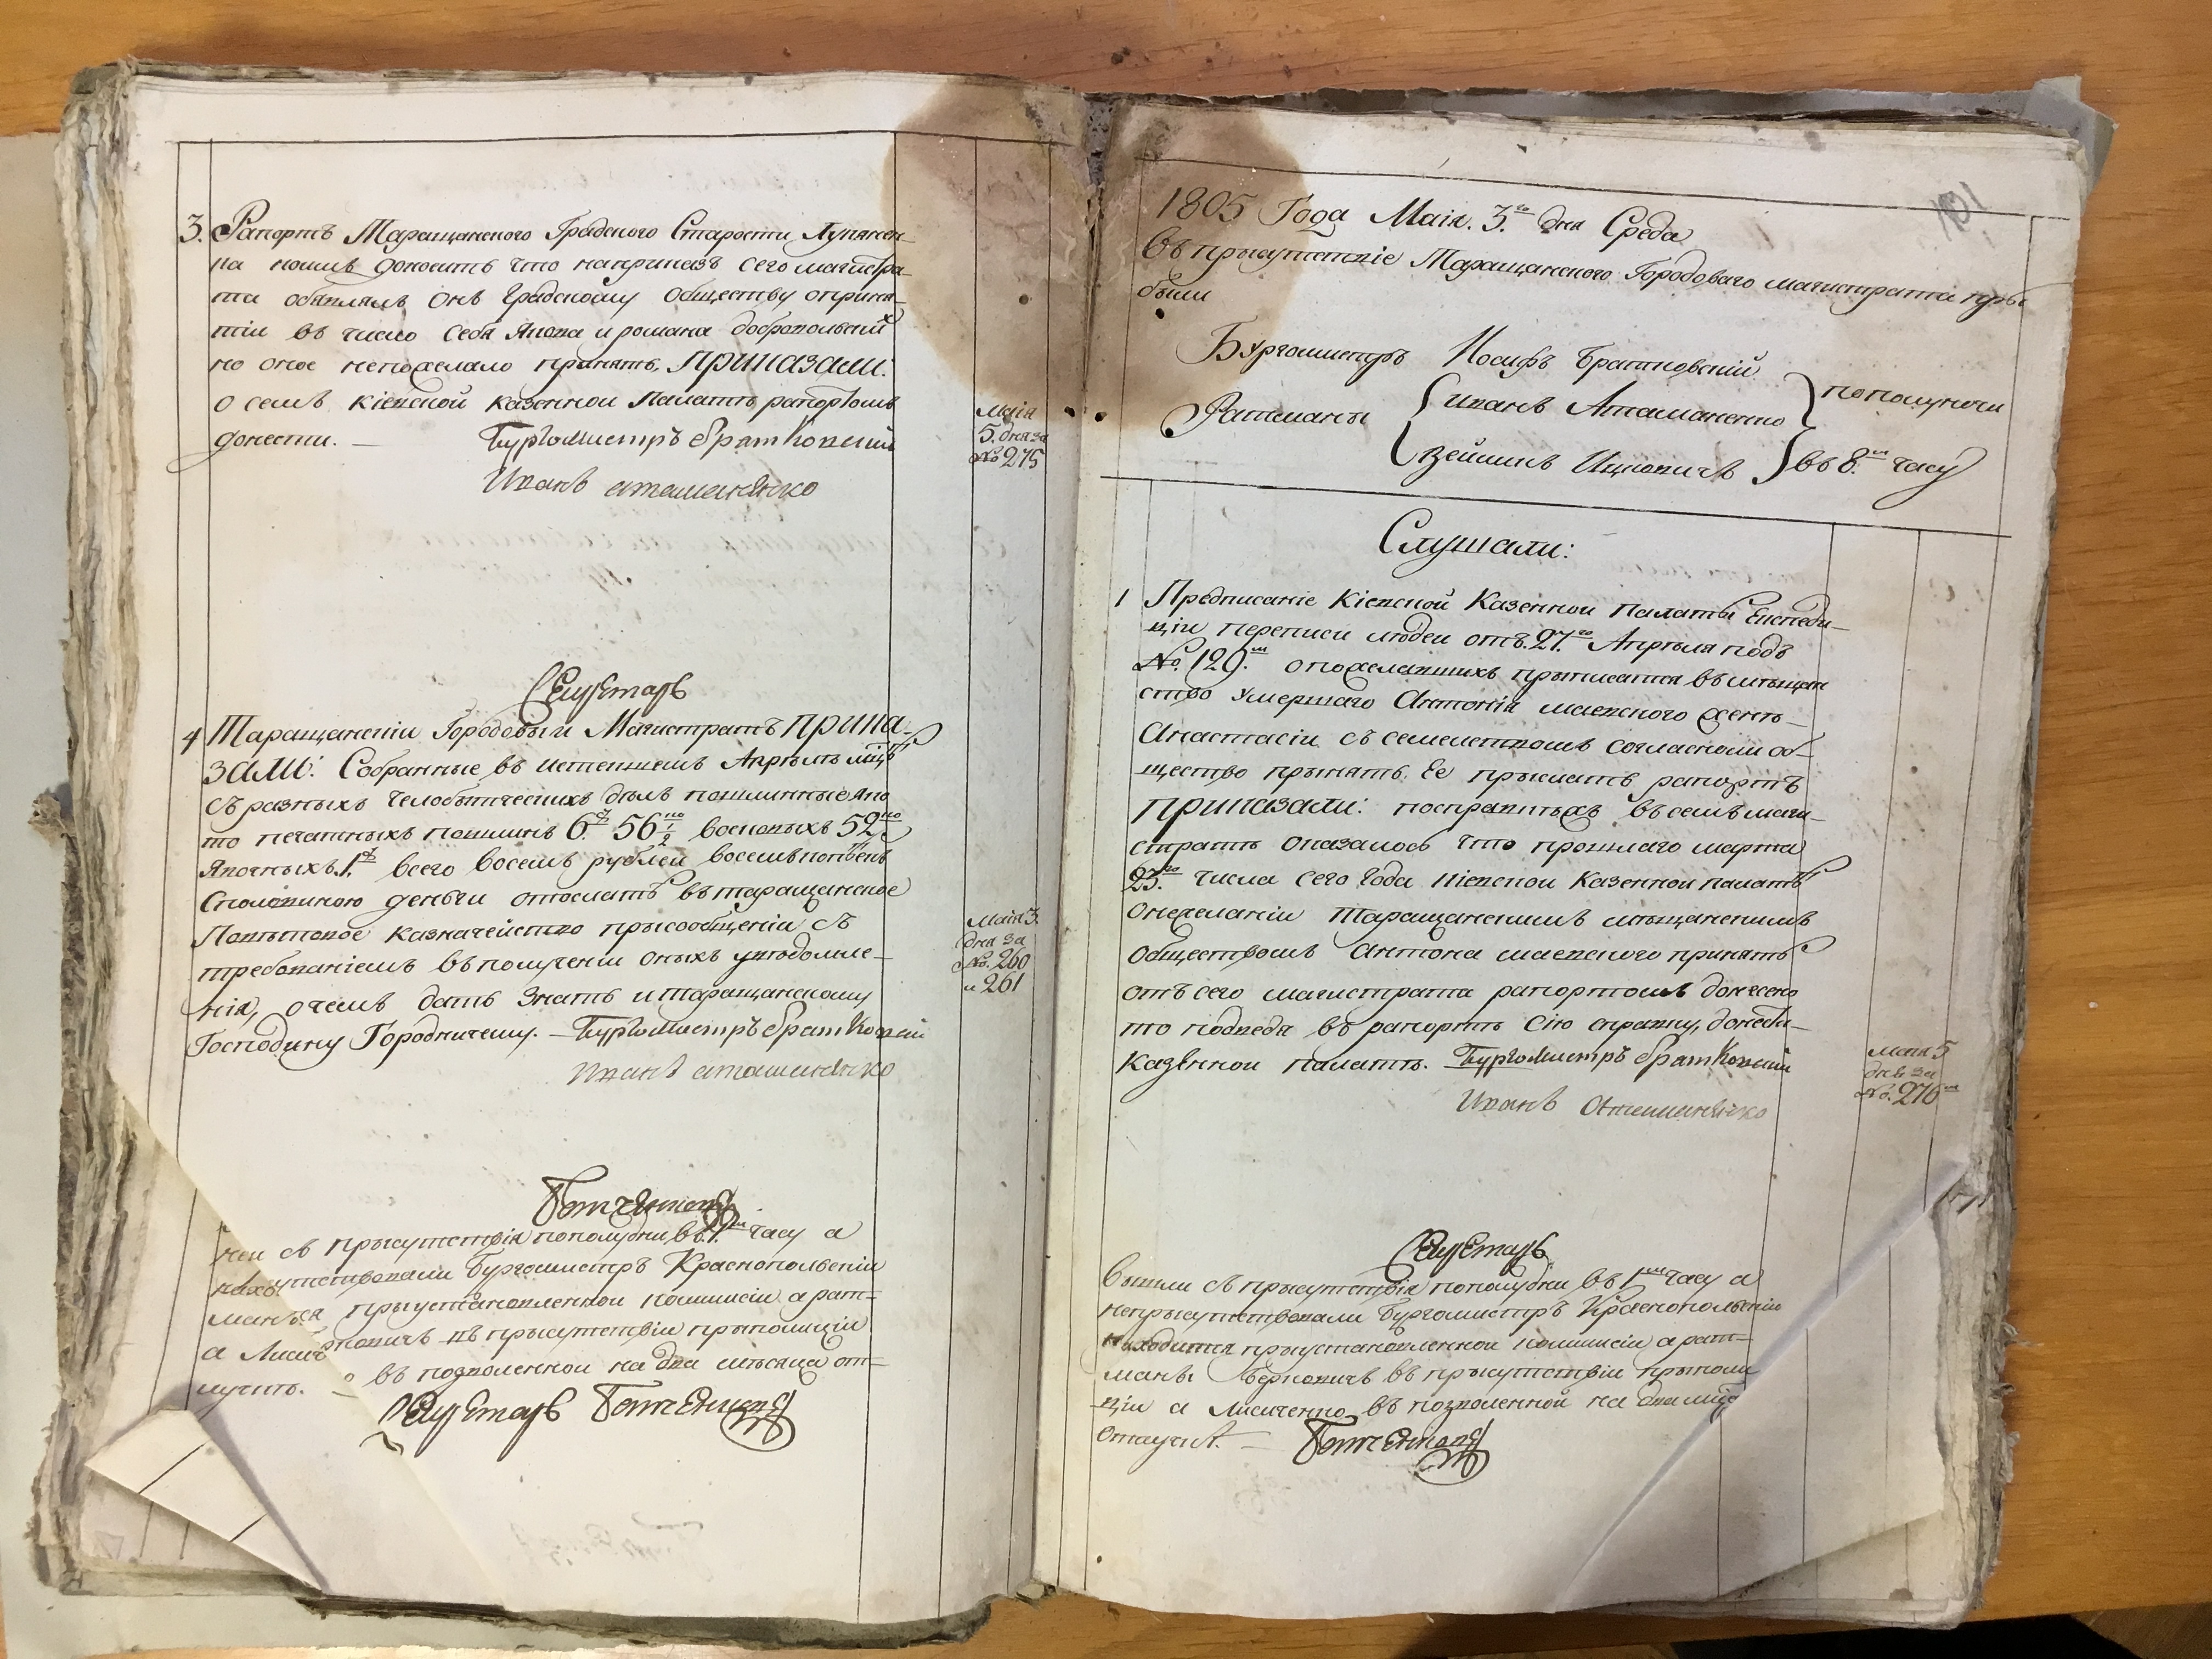 3. Рапортъ Таращанского Градского Старости Лупянен-
ка коимъ доноситъ что наприказъ сего магистра-
та обявлялъ онъ Градскому Обществу оприня-
тіи въ число себя Якова и романа добровольскихъ
но оное непожелало принять, Приказали:
о семъ Кіевской казенной Палатѣ рапортомъ
донести. — Бургомистръ братковский
Иванъ атаманенко
Маія
5. дня за
№ 275
Секретарь
4 Таращанскіи Городовыи Магистратъ Прика-
зали: Собранные въ истекшемъ Апрѣлѣ мцѣ
съ разныхъ челобитческихъ дѣлъ пошлинные яко
то печатныхъ пошлинъ 6. 56 1/2 восковыхъ 52
Явочныхъ 1. всего восемь рублей восемь копѣекъ
Споловиною деньги отослать въ таращанское
Повѣтовое казначейство присообщеніи съ
требованіемъ въ полученіи оныхъ уведомле-
нія, очемъ дать знать и таращанскому
Господину Городничему. — Бургомистръ братковский
Иванъ атаманенко
Маія 3.
дня за
№. 260
и 261
съ присутствія пополудни въ часу а
Бургомистръ Краснопольскіи
приустановленной комисіи а рат-
въ присутствіи приполиціи
а въ позволенной на два мѣсяца от-
лучкѣ.
Секретарь
1805 Года Маія. 3.го дня Среда
въ присутствіе Таращанского Городоваго магистрата при
были
Бургомистръ Иосифъ Братковскій
Ратманы иванъ Атаманенко пополуночи
Зейликъ Ицковичъ въ 8.мъ часу
Слушали:
1 Предписаніе Кіевской Казенной Палаты Експеди-
ціи переписи людеи отъ. 27.го Апрѣля подъ
№. 129.мъ опожелавшихъ приписатся въ мѣщан
ство умершаго Антонія маевского женѣ
Анастасіи съ семействомъ согласноли об-
щество принять. Ее прислать рапортъ
Приказали: посправкѣ въ семъ маги-
стратѣ оказалось что прошлаго марта
23.го числа сего года Кіевской Казенной палатѣ
онежеланіи Таращанскимъ мѣщанскимъ
обществомъ Антона маевского принять
отъ сего магистрата рапортомъ донесено
то подведя въ рапортѣ Сію справку, донести
казенной палатѣ. Бургомистръ братковский
Иванъ Атаманенко
Маія 5
дня за
№. 276
Секретарь
Вышли съ присутствія пополудни въ 1мъ часу а
неприсутствовали Бургомистръ Краснопольскіи
находится приустановленной комисіи а рат-
манъ Берковичъ въ присутствіи приполи
ціи а Лисиченко въ позволенной на два
отлучкѣ. —